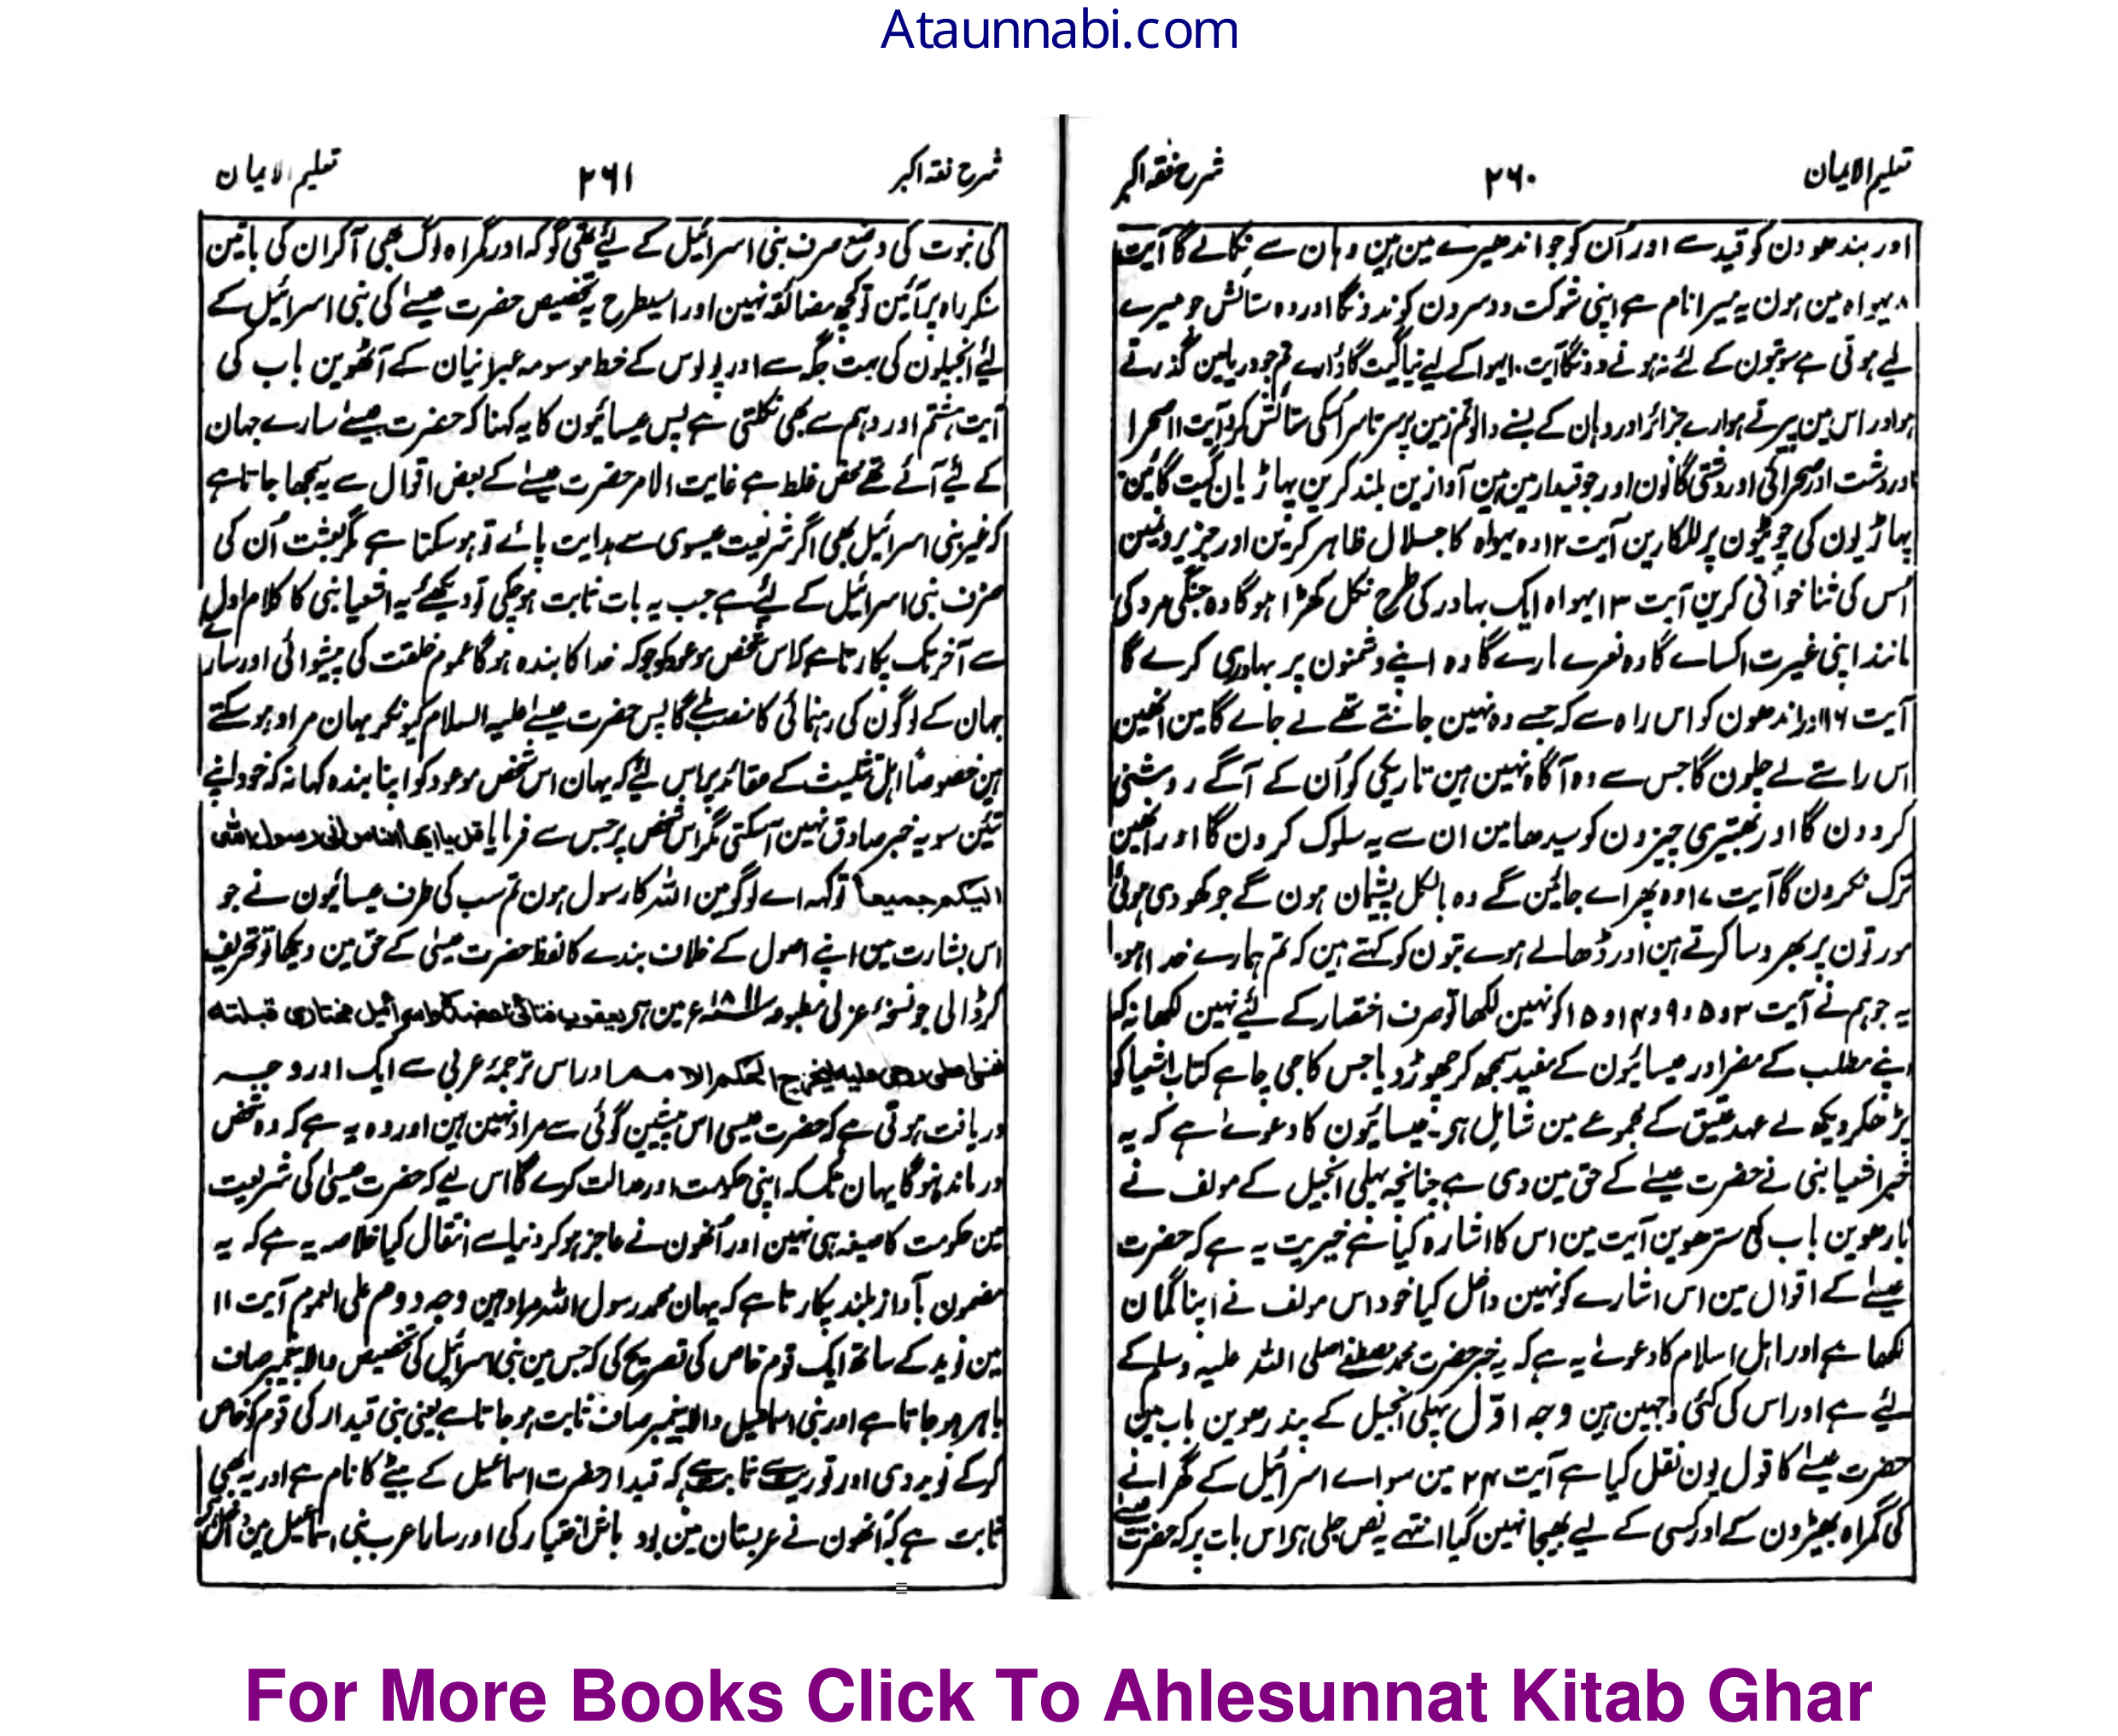 Ataunnabi.com
تعلیم الایمان ۲۶۰ شرح فقہ اکبر
اور بندھوؤن کو قید سے اور اُن کو جو اندھیرے مین ہین وہان سے نکالے گا آیت
۸ یہواہ مین ہون یہ میرا نام ہے اپنی شوکت دوسرون کو ندونگا اور وہ ستائش جو میرے
لیے ہوتی ہے سو بتون کے لئے نہ ہونے دونگا آیت ۱۰ یہوا کے لیے نیا گیت گاؤ اے تم جو دریا مین گذرتے
ہو اور اس مین پیرتے ہو اے جزائر اور وہان کے بسنے والو تم زمین پر سرتاسر اُسکی ستائش کرو آیت ۱۱ صحرا
اور دشت اور صحرا کی اور دشتی گانون اور جو قیدار مین ہین آوازین بلند کرین پہاڑیان گیت گائین
پہاڑیون کی چوٹیون پر للکارین آیت ۱۲ وہ یہواہ کا جلال ظاہر کرین اور جزیرونمین
اُس کی ثنا خوانی کرین آیت ۱۳ یہواہ ایک بہادر کی طرح نکل کھڑا ہوگا وہ جنگی مرد کی
مانند اپنی غیرت اکساے گا وہ نعرے مارے گا وہ اپنے دشمنون پر بہادری کرے گا
آیت ۱۶ اور اندھون کو اس راہ سے کہ جسے وہ نہین جانتے تھے لے جاے گا مین انھین
اس راستے لے چلون گا جس سے وہ آگاہ نہین ہین تاریکی کو اُن کے آگے روشنی
کردون گا اور چیزون کو سیدھا مین ان سے یہ سلوک کرون گا اور انھین
ترک نکرون گا آیت ۱۷ وہ پھراے جائین گے وہ بالکل پشیمان ہون گے جو کھودی ہوئی
مورتون پر بھروسا کرتے ہین اور ڈھالے ہوے بتون کو کہتے ہین کہ تم ہمارے خدا ہو
یہ جو ہم نے آیت ۳ و ۵ و ۹ و ۱۴ و ۱۵ کو نہین لکھا تو صرف اختصار کے لئے نہین لکھا نہ کہ
اپنے مطلب کے مضر اور عیسائیون کے مفید سمجھ کر چھوڑ دیا جس کا جی چاہے کتاب اشعیا کو
پڑھکر دیکھ لے عہد عتیق کے مجموعے مین شامل ہے عیسائیون کا دعوے ہے کہ یہ
خبر اشعیا نبی نے حضرت عیسےٰ کے حق مین دی ہے چنانچہ پہلی انجیل کے مولف نے
بارھوین باب کی سترھوین آیت مین اس کا اشارہ کیا ہے خیریت یہ ہے کہ حضرت
عیسےٰ کے اقوال مین اس اشارے کو نہین داخل کیا خود اس مولف نے اپنا گمان
لکھا ہے اور اہل اسلام کا دعوےٰ یہ ہے کہ یہ خبر حضرت محمد مصطفےٰ صلی اللہ علیہ وسلم کے
لئے ہے اور اس کی کئی وجہین ہین وجہ اوّل پہلی انجیل کے پندرھوین باب مین
حضرت عیسےٰ کا قول یون نقل کیا ہے آیت ۲۴ مین سواے اسرائیل کے گھرانے
کی گمراہ بھیڑون کے اور کسی کے لیے بھیجا نہین گیا انتہےٰ یہ نص جلی ہے اس بات پر کہ حضرت عیسےٰ
شرح فقہ اکبر ۲۶۱ تعلیم الایمان
کی نبوت کی وضع صرف بنی اسرائیل کے لئے تھی گو کہ اور گمراہ لوگ بھی آکر ان کی باتین
سنکر راہ پر آئین تو کچھ مضائقہ نہین اور اسیطرح یہ تخصیص حضرت عیسےٰ کی بنی اسرائیل کے
لئے انجیلون کی بہت جگہ سے اور پولوس کے خط موسومہ عبرانیان کے آٹھوین باب کی
آیت ہشتم اور دہم سے بھی نکلتی ہے پس عیسائیون کا یہ کہنا کہ حضرت عیسےٰ سارے جہان
کے لئے آئے تھے محض غلط ہے غایت الامر حضرت عیسےٰ کے بعض اقوال سے یہ سمجھا جاتا ہے
کہ غیر بنی اسرائیل بھی اگر شریعت عیسوی سے ہدایت پائے تو ہو سکتا ہے مگر بعثت اُن کی
صرف بنی اسرائیل کے لئے ہے جب یہ بات ثابت ہوچکی تو دیکھئے یہ اشعیا نبی کا کلام اول
سے آخر تک پکارتا ہے کہ اس شخص موعود کو جو کہ خدا کا بندہ ہوگا عموم خلقت کی پیشوائی اور سارے
جہان کے لوگون کی رہنمائی کا منصب ملے گا پس حضرت عیسےٰ علیہ السلام کیونکر یہان مراد ہوسکتے
ہین خصوصًا اہل تثلیث کے عقائد پر اس لئے کہ یہان اس شخص موعود کو اپنا بندہ کہا نہ کہ خود اپنے
تئین سو یہ خبر صادق نہین آسکتی مگر اس شخص پر جس سے فرمایا قل یا ایها الناس انی رسول الله
الیکم جمیعا تو کہہ اے لوگو مین اللہ کا رسول ہون تم سب کی طرف عیسائیون نے جو
اس بشارت مین اپنے اصول کے خلاف بندے کا لفظ حضرت عیسیٰ کے حق مین دیکھا تو تحریف
کرڈالی جو نسخۂ عربی مطبوعہ مین ہے یعقوب فتائی اسرائیل مختاری قبلته
نفسی روحی علیه الحکم الامم اور اس ترجمۂ عربی سے ایک اور وجہ
دریافت ہوتی ہے کہ حضرت عیسی اس پیشین گوئی سے مراد نہین ہین اور وہ یہ ہے کہ وہ شخص
درماندہ نہوگا یہان تک کہ اپنی حکومت اور عدالت کرے گا اس لیے کہ حضرت عیسیٰ کی شریعت
مین حکومت کا صیغہ ہی نہین اور اُنھون نے عاجز ہوکر دنیا سے انتقال کیا خلاصہ یہ ہے کہ یہ
مضمون بآواز بلند پکارتا ہے کہ یہان محمد رسول اللہ مراد ہین وجہ دوم علی العموم آیت ۱۱
مین نوید کے ساتھ ایک قوم خاص کی تصریح کی کہ جس مین بنی اسرائیل کی تخصیص والا پیغمبر صاف
باہر ہوجاتا ہے اور بنی اسماعیل والا پیغمبر صاف ثابت ہوجاتا ہے یعنی بنی قیدار کی قوم کو خاص
کرکے نوید دی اور توریت سے ثابت ہے کہ قیدار حضرت اسماعیل کے بیٹے کا نام ہے اور یہ بھی
ثابت ہے کہ اُنھون نے عربستان مین بود باش اختیار کی اور سارا عرب بنی اسماعیل مین
For More Books Click To Ahlesunnat Kitab Ghar